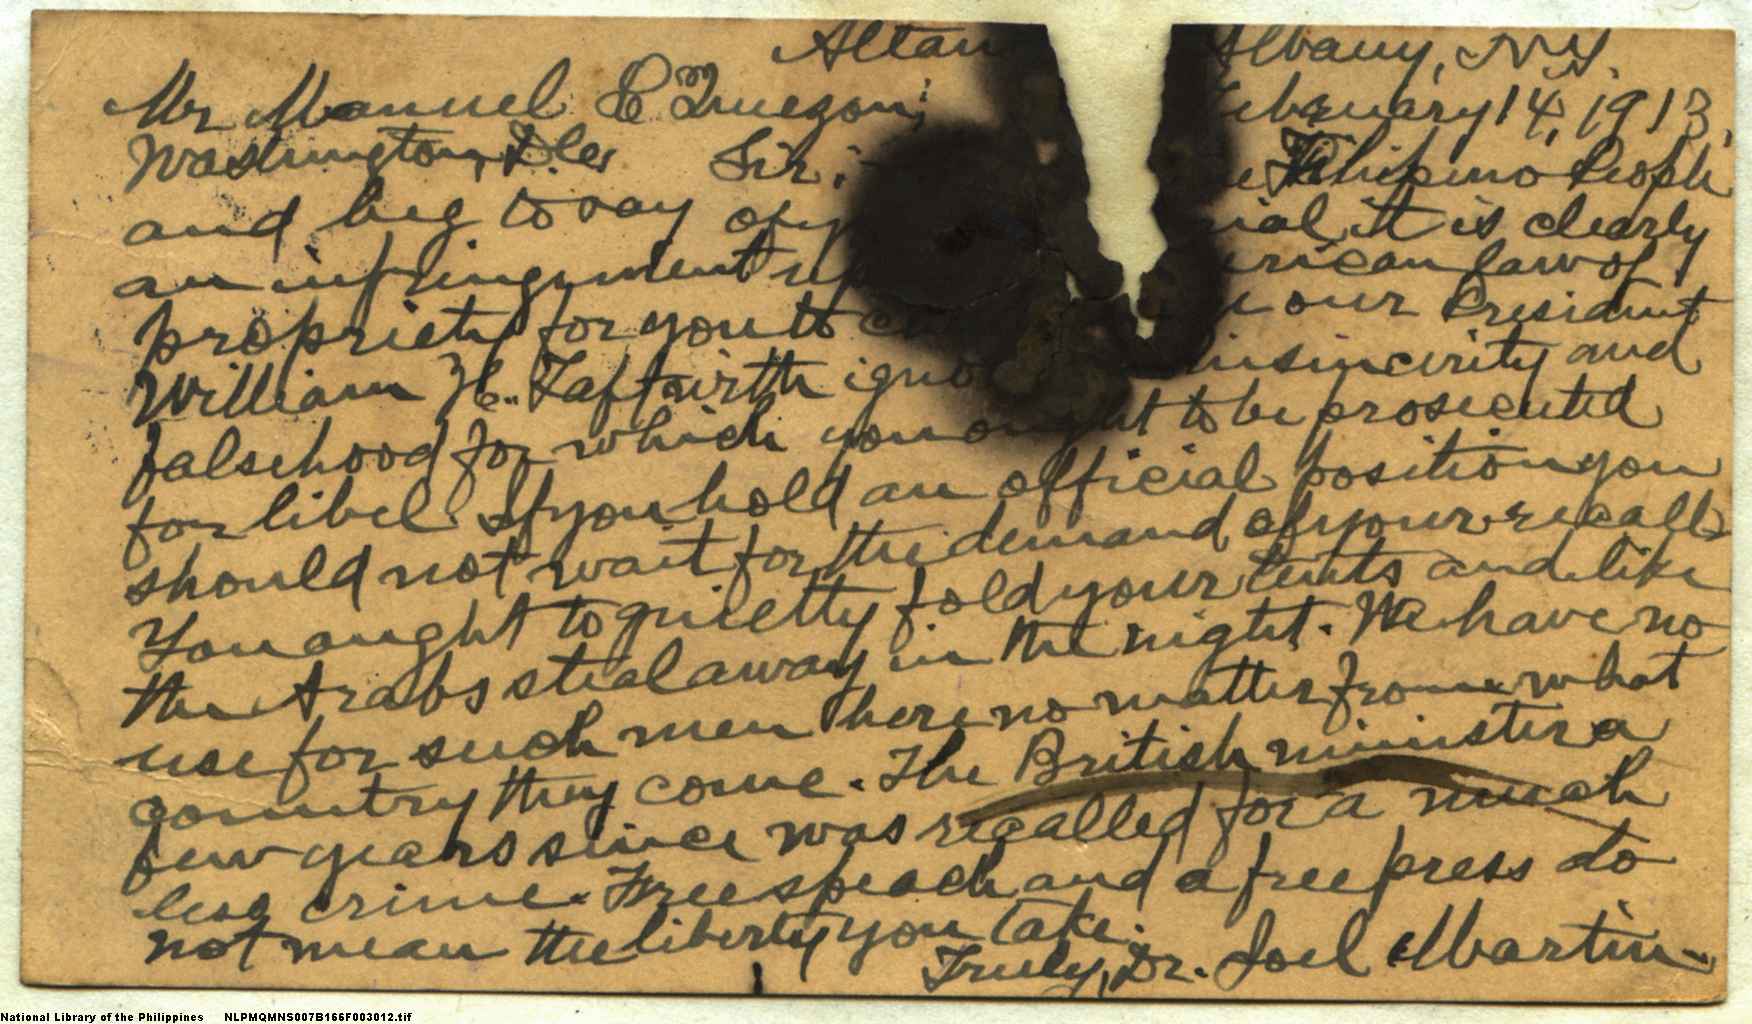 Altam Albany, N.Y.
Mr Manuel E Quezon; February 14, 1913,
Washington, D.C. Sir: Philipino People
and beg to say of y ial it is clearly
an infringement up erican law of
propriety for you to our President
William H. Taft with igno insincerity and
falsehood for which you ought to be prosecuted
for libel. If you hold an official position you
should not wait for the demand of your recall
You ought to quietly fold your tents and like
the Arabs steal away in the night. We have no
use for such men here no matter from what
country they come. The British minister a
few years since was recalled for a much
less crime. Free speach and a free press do
not mean the liberty you take.
Truly, Dr. Joel Martin
National Library of the Philippines NLPMQMNS007B166F003012.tif